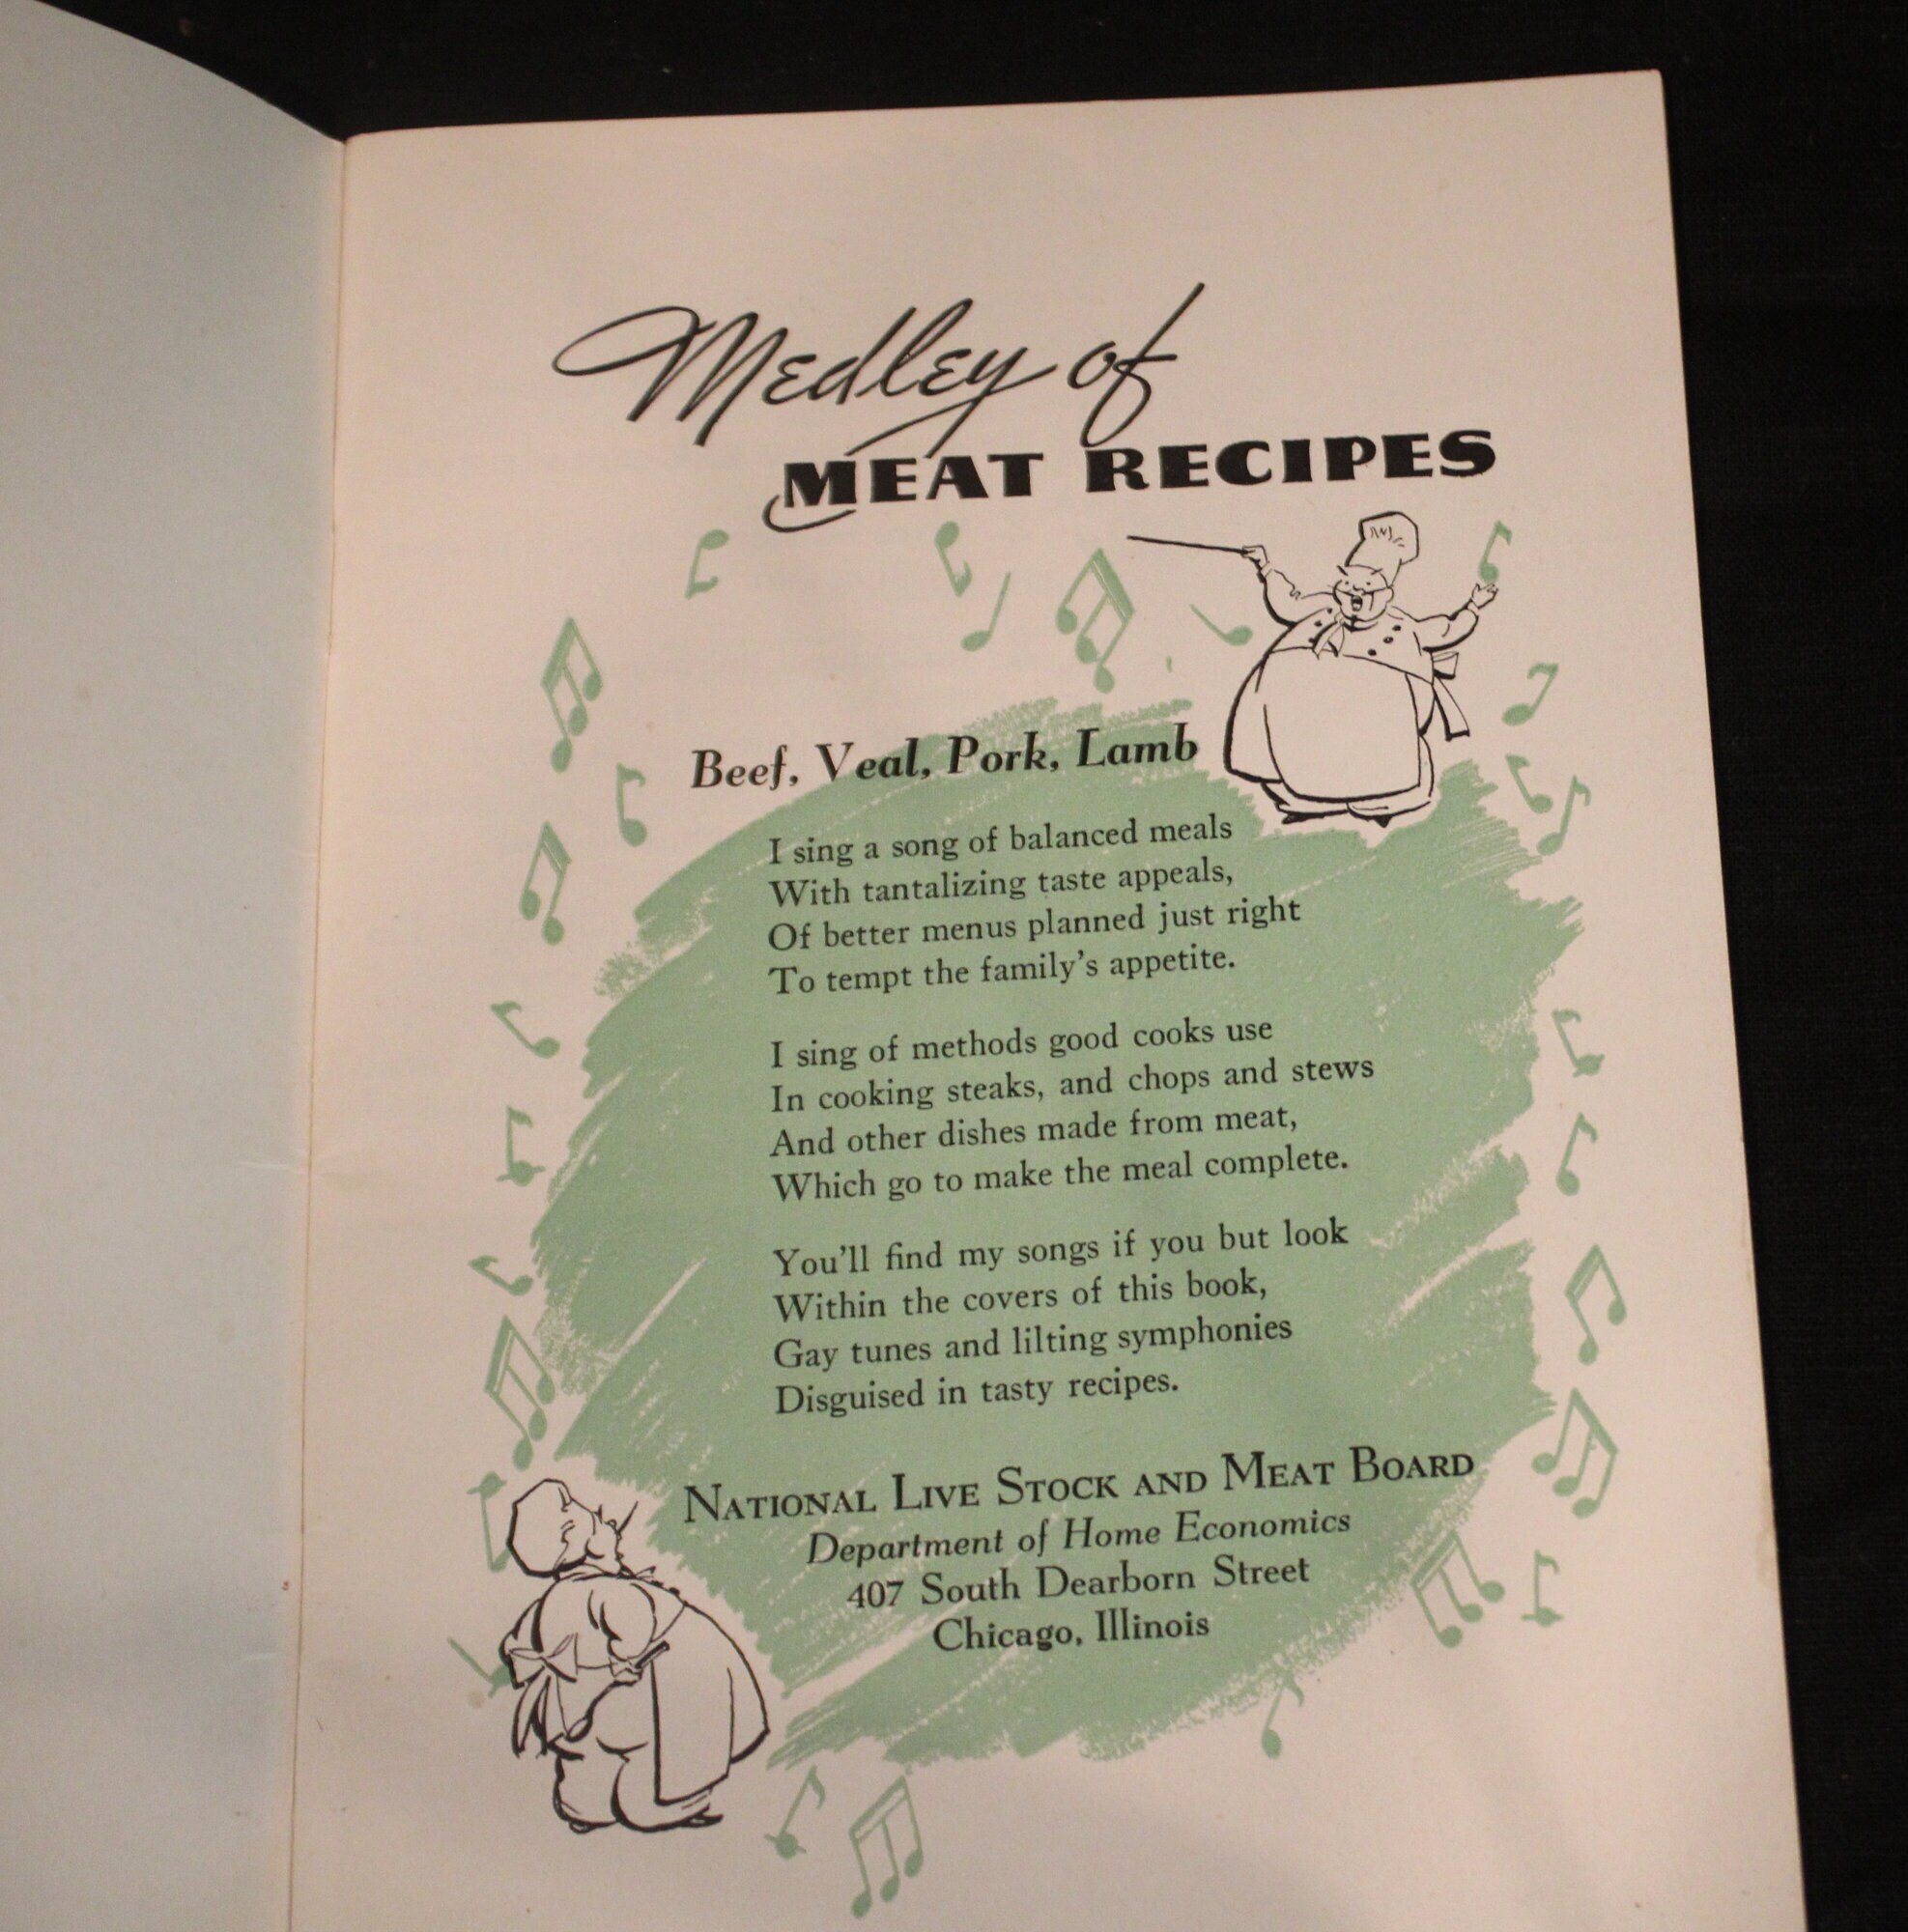 Medley of
MEAT RECIPES
Beef, Veal, Pork, Lamb
I sing a song of balanced meals
With tantalizing taste appeals,
Of better menus planned just right
To tempt the family's appetite.
I sing of methods good cooks use
In cooking steaks, and chops and stews
And other dishes made from meat,
Which go to make the meal complete.
You'll find my songs if you but look
Within the covers of this book,
Gay tunes and lilting symphonies
Disguised in tasty recipes.
NATIONAL LIVE STOCK AND MEAT BOARD
Department of Home Economics
407 South Dearborn Street
Chicago, Illinois